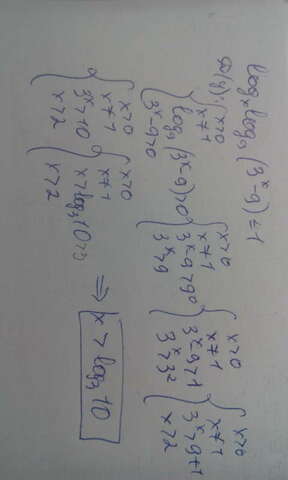 logₓ log₉ (3ˣ-9) ≤ 1
D(y): { x>0 x≠1 log₉ (3ˣ-9)>0 3ˣ-9>0 { x>0 x≠1 3ˣ-9>9⁰ 3ˣ>9 { x>0 x≠1 3ˣ-9>1 3ˣ>3² { x>0 x≠1 3ˣ>9+1 x>2
{ x>0 x≠1 3ˣ>10 x>2 { x>0 x≠1 x>log₃10 x>2 ⇒ x>log₃10